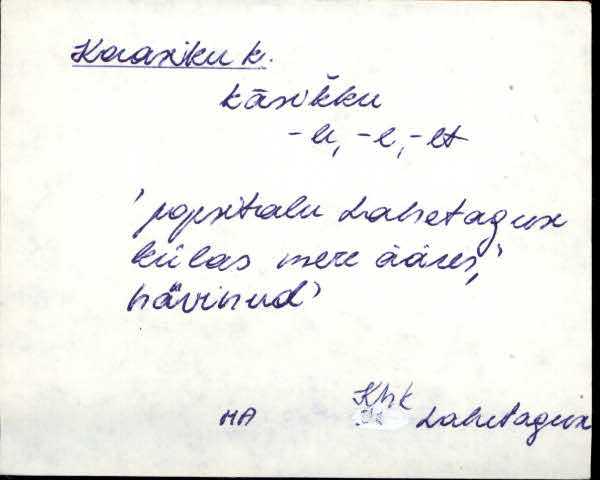 Kaasiku k.
kāsikku
-u, -e, -et
'popsitalu Lahetaguse
külas mere ääres,'
hävinud'
MA Khk Lahetaguse